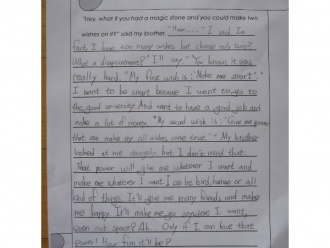 "Hey, what if you had a magic stone and you could make two
wishes on it?" said my brother. "Hmm...." I said. In
fact, I have too many wishes, but change only two?
What a disappointment! I'll say "You know, it was
really hard. "My first wish is: Make me smart'.
I want to be smart because I want to go to
the good university. And want to have a good job and
make a lot of money. "My second wish is: "Give me power
that me make my all wishes come true." My brother
looked at me strangely, but I don't mind that.
That power will give me whatever I want and
make me whatever I want. I can be bird, human or all
kind of things. It'll give me many friends and make
me happy. It'll make me go anywhere I want,
even out space! Ah.. Only if I can have that
power! How fun it'll be?